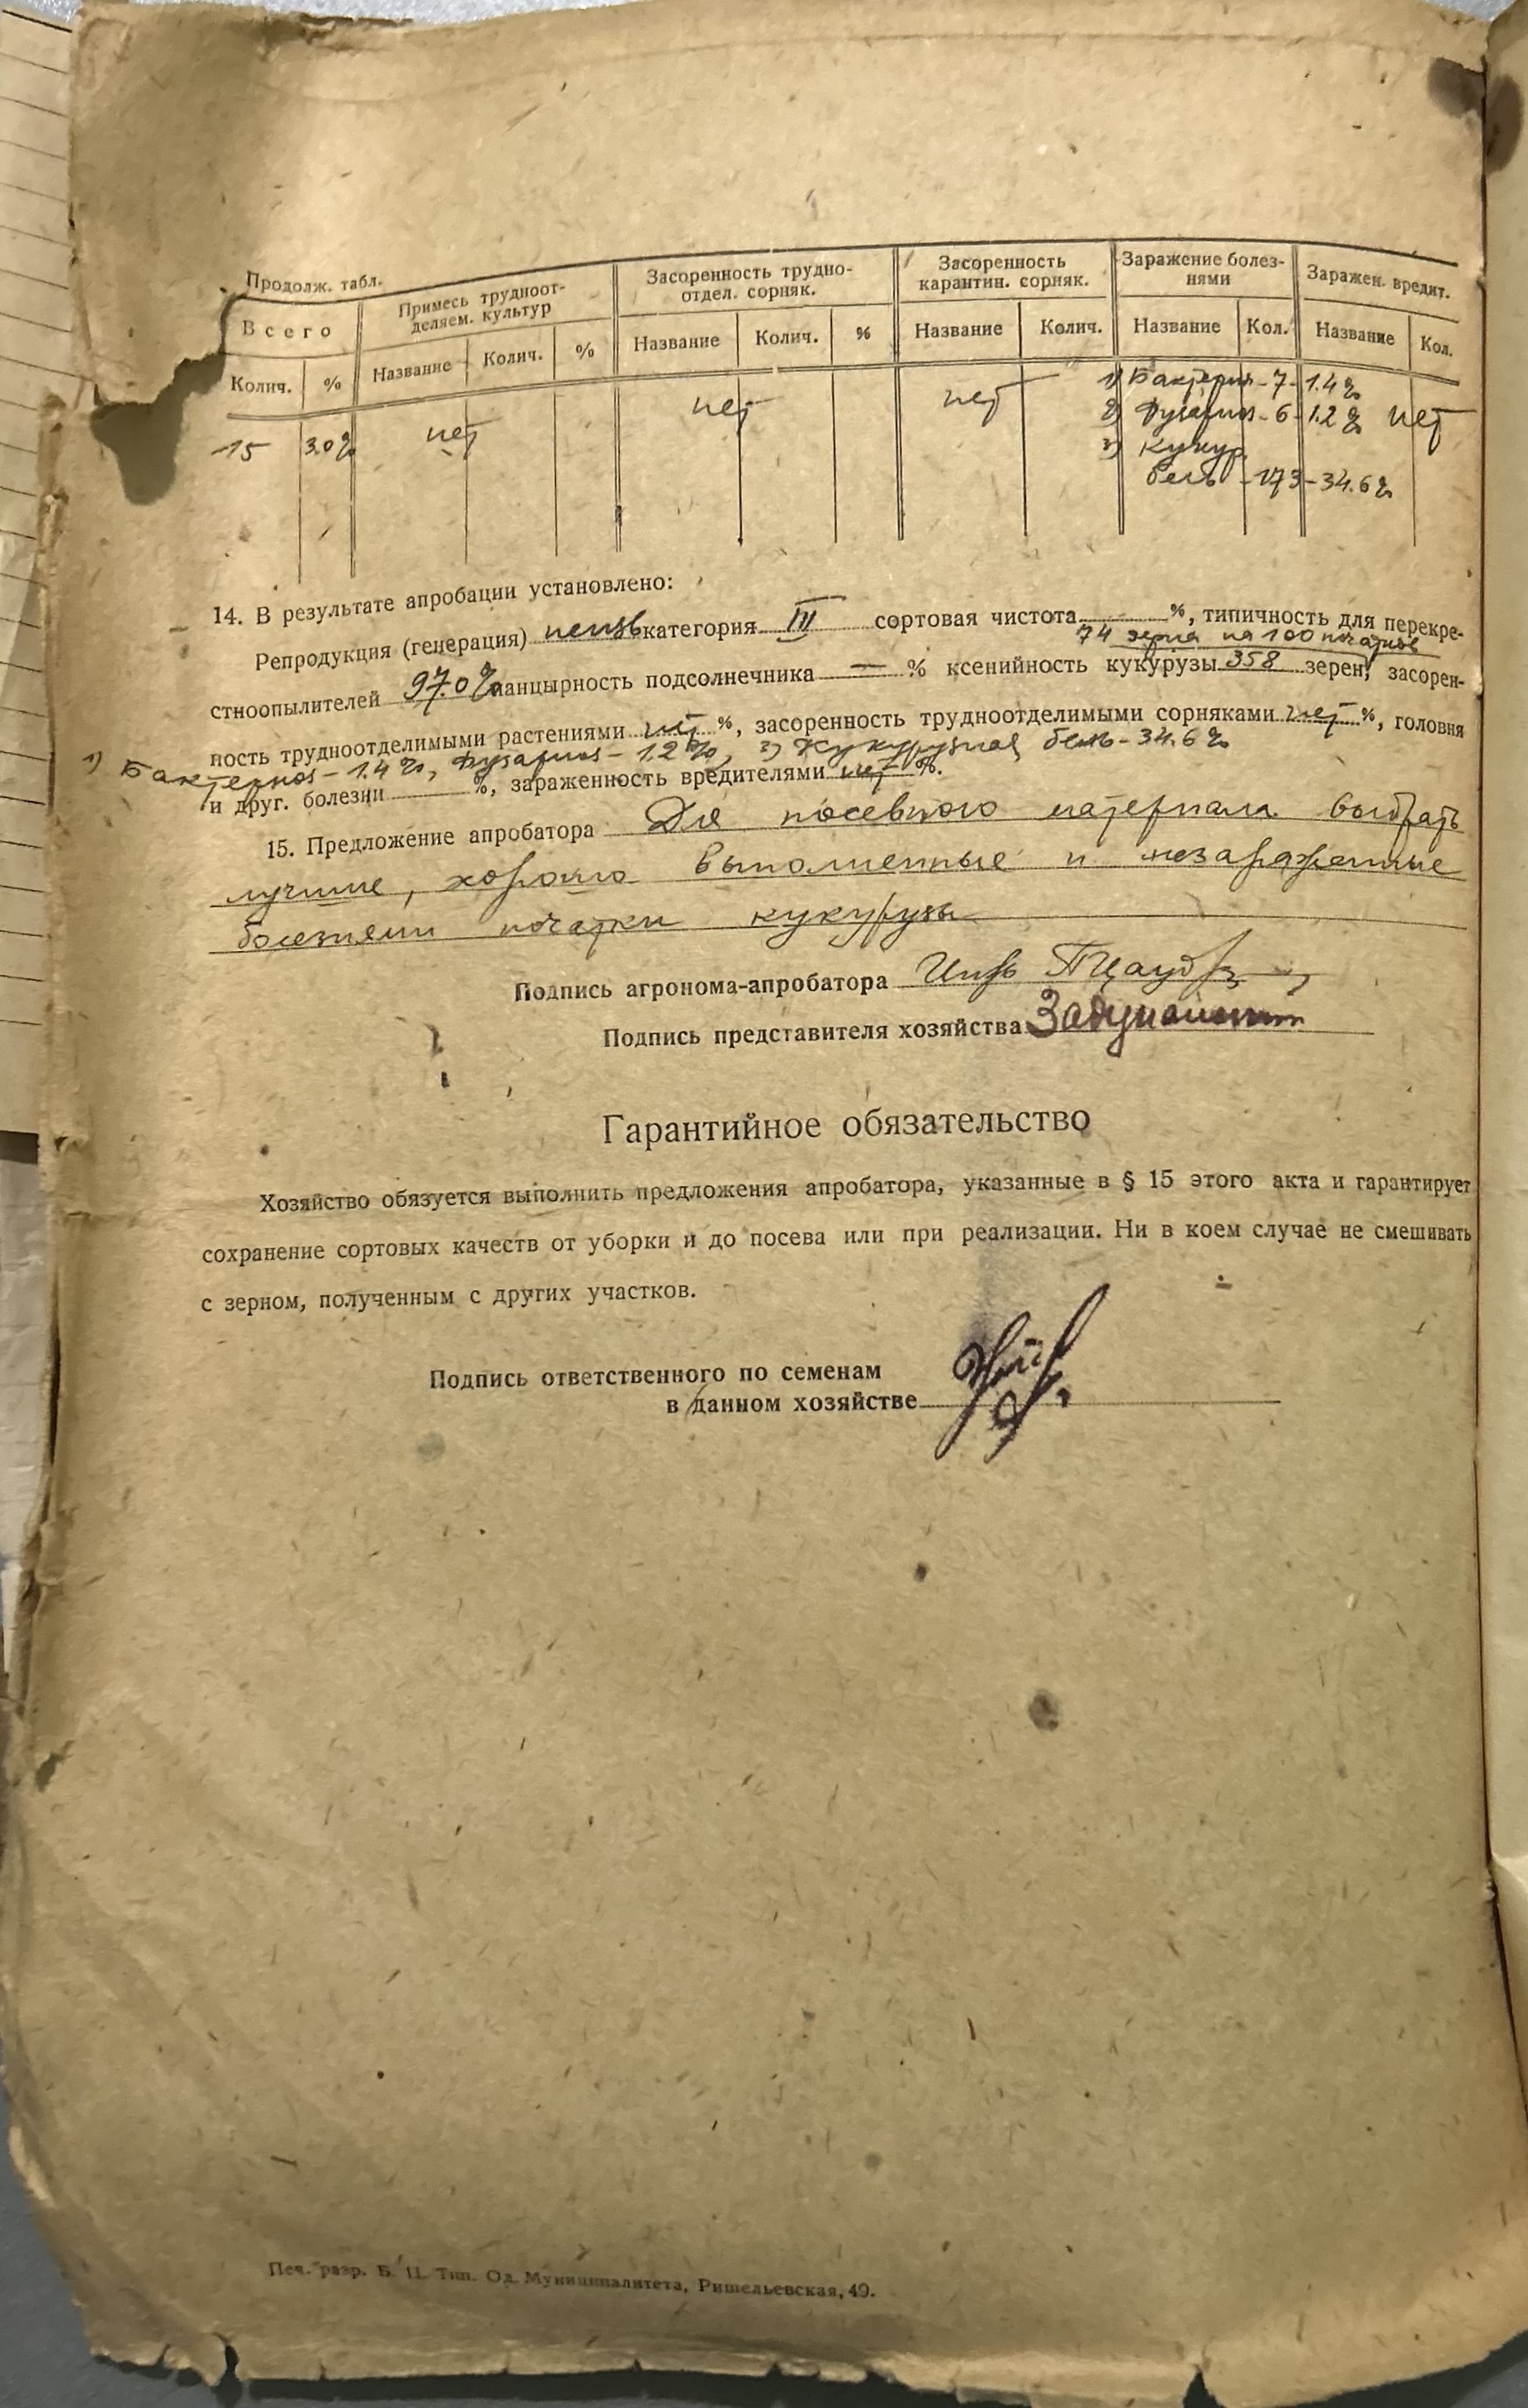 Продолж. табл.
Всего
Примесь трудноот-
деляем. культур
Засоренность трудно-
отдел. сорняк.
Засоренность
карантин. сорняк.
Заражение болез-
нями
Заражен. вредит.
Колич. % Название Колич. % Название Колич. % Название Колич. Название Кол. Название Кол.
15 3.0% нет нет нет 1) Бактериоз - 7 - 1.4% нет
2) Фузариоз - 6 - 1.2%
3) Кукур.
бель - 173 - 34.6%
14. В результате апробации установлено:
Репродукция (генерация) неизв категория III сортовая чистота %, типичность для перекре-
74 зерна на 100 початков
стноопылителей 97.0% панцырность подсолнечника — % ксенийность кукурузы 358 зерен, засорен-
ность трудноотделимыми растениями нет %, засоренность трудноотделимыми сорняками нет %, головня
1) Бактериоз - 1.4%, Фузариоз - 1.2%, 3) Кукурузная бель - 34.6%
и друг. болезни %, зараженность вредителями нет %.
15. Предложение апробатора Для посевного материала выбрать
лучшие, хорошо выполненные и незараженные
болезнями початки кукурузы
Подпись агронома-апробатора
Подпись представителя хозяйства
Гарантийное обязательство
Хозяйство обязуется выполнить предложения апробатора, указанные в § 15 этого акта и гарантирует
сохранение сортовых качеств от уборки и до посева или при реализации. Ни в коем случае не смешивать
с зерном, полученным с других участков.
Подпись ответственного по семенам
в данном хозяйстве
Печ. разр. Б. Ц. Тип. Од. Муниципалитета, Ришельевская, 49.